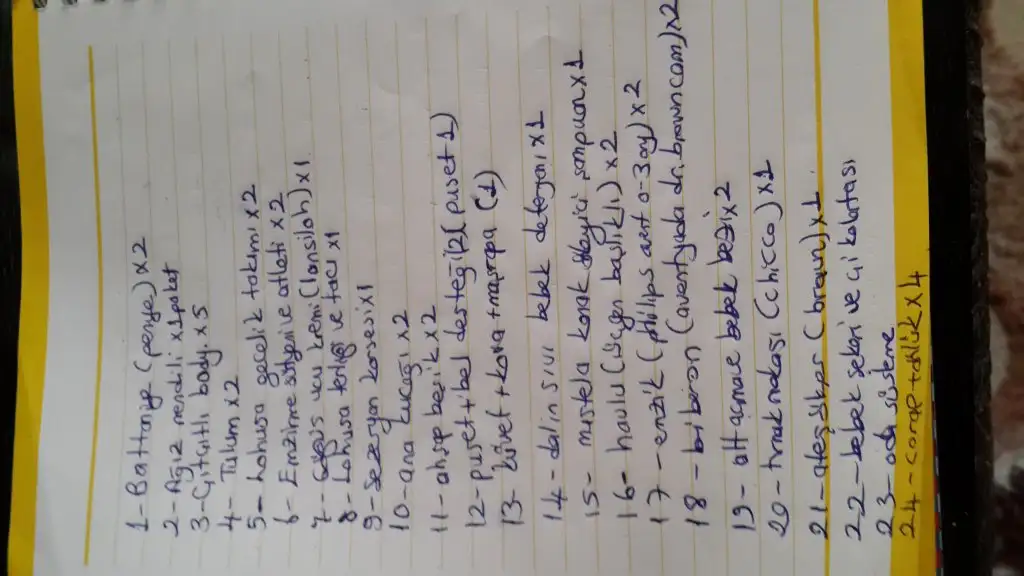 1- Battaniye (penye) x2
2- Ağız mendili x1paket
3- Çıtçıtlı body x5
4- Tulum x2
5- Lohusa gecelik takımı x2
6- Emzirme sütyeni ve atleti x2
7- Göğüs ucu kremi (lansiloh) x1
8- Lohusa terliği ve tacı x1
9- Sezeryan korsesi x1
10- ana kucağı x2
11- ahşap beşik x2
12- puset + bel desteği 2 (puset 1)
13- küvet + kova + maşrapa (1)
14- dalin sıvı bebek deterjanı x1
15- mustela konak şampuan x1
16- havlu ( ) x2
17- emzik (philips avent 0-3ay) x2
18- biberon (aventyada dr.brawncam) x2
19- alt açmave bebek bezi x2
20- tırnakmakası (chicco) x1
21- ateşölçer (braun) x1
22- bebek şekeri ve çikolatası
23- oda süsleme
24- çorap + patik x4